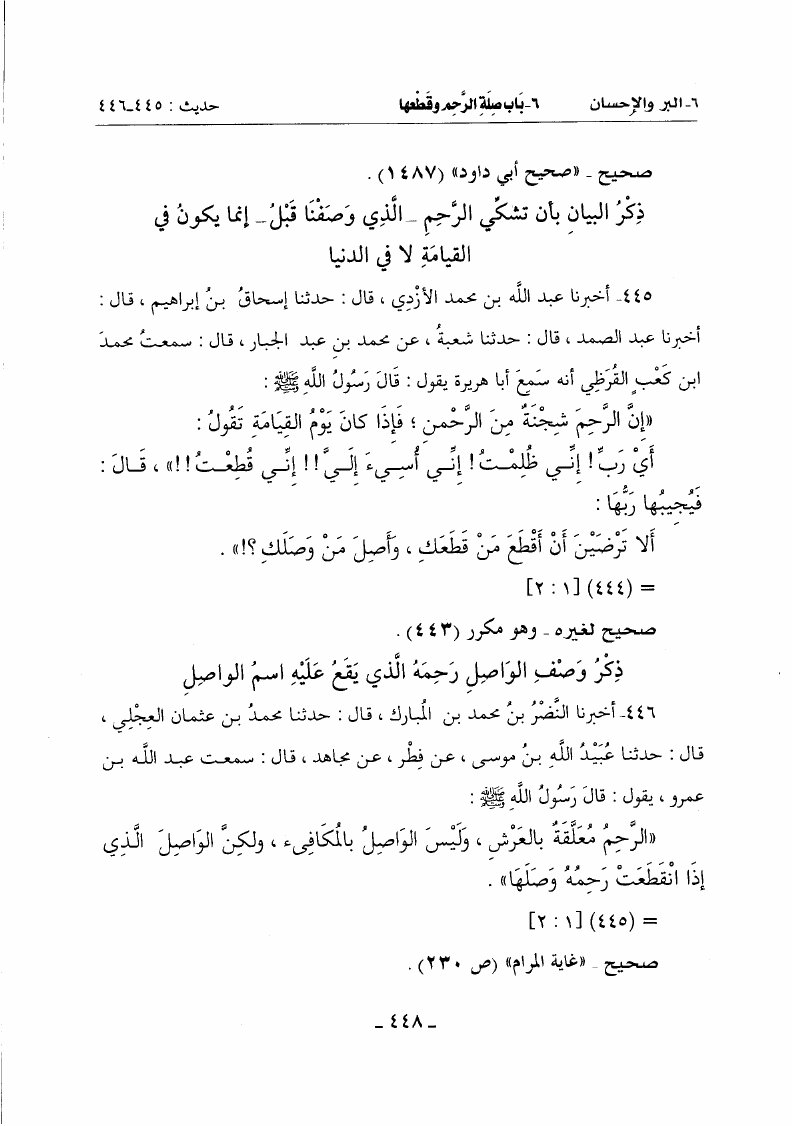 ٦- البر والإحسان ٦- بَاب صِلَةِ الرَّحِمِ وقَطْعِها حديث : ٤٤٥-٤٤٦
صحيح - «صحيح أبي داود» (١٤٨٧) .
ذِكْرُ البيانِ بأن تشكِّي الرَّحِمِ -الَّذِي وَصَفْنَا قَبْلُ- إنما يكونُ في
القيامَةِ لا في الدنيا
٤٤٥- أخبرنا عبد اللَّه بن محمد الأَزْدِي ، قال : حدثنا إسحاقُ بنُ إبراهيم ، قال :
أخبرنا عبد الصمد ، قال : حدثنا شعبةُ ، عن محمد بنِ عبد الجبار ، قال : سمعتُ محمدَ
ابن كَعْبٍ القُرَظِي أنه سَمِعَ أبا هريرة يقول : قَالَ رَسُولُ اللَّهِ ﷺ :
«إنَّ الرَّحِمَ شِجْنَةٌ مِنَ الرَّحْمنِ ؛ فَإِذَا كَانَ يَوْمُ القِيَامَةِ تَقُولُ :
أَيْ رَبِّ ! إِنِّي ظُلِمْتُ ! إِنِّي أُسِيءَ إِلَيَّ ! ! إِنِّي قُطِعْتُ ! !» ، قَالَ :
فَيُجِيبُها رَبُّها :
أَلا تَرْضَيْنَ أَنْ أَقْطَعَ مَنْ قَطَعَكِ ، وَأَصِلَ مَنْ وَصَلَكِ ؟!» .
= (٤٤٤) [١ : ٢]
صحيح لغيره - وهو مكرر (٤٤٣) .
ذِكْرُ وَصْفِ الوَاصِلِ رَحِمَهُ الَّذي يَقَعُ عَلَيْهِ اسمُ الواصِلِ
٤٤٦- أخبرنا النَّضْرُ بنُ محمد بن المُبارك ، قال : حدثنا محمدُ بن عثمان العِجْلي ،
قال : حدثنا عُبَيْدُ اللَّهِ بنُ موسى ، عن فِطْرٍ ، عن مجاهد ، قال : سمعت عبد اللَّه بن
عمرو ، يقول : قالَ رَسُولُ اللَّهِ ﷺ :
«الرَّحِمُ مُعَلَّقَةٌ بالعَرْشِ ، وَلَيْسَ الوَاصِلُ بالمُكَافِىء ، ولكِنَّ الوَاصِلَ الَّذِي
إِذَا انْقَطَعَتْ رَحِمُهُ وَصَلَهَا» .
= (٤٤٥) [١ : ٢]
صحيح - «غاية المرام» (ص ٢٣٠) .
- ٤٤٨ -